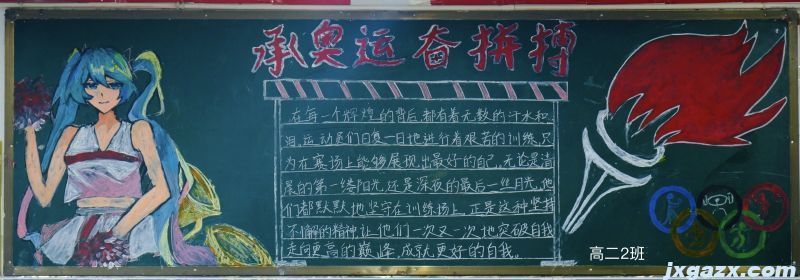 承奥运奋拼搏
在每一个辉煌的背后,都有着无数的汗水和
泪,运动员们日复一日地进行着艰苦的训练,只
为在赛场上能够展现出最好的自己。无论是清
晨的第一缕阳光,还是深夜的最后一丝月光,他
们都默默地坚守在训练场上。正是这种坚持
不懈的精神让他们一次又一次地突破自我
走向更高的巅峰,成就更好的自我。
高二2班
jxgazx.com